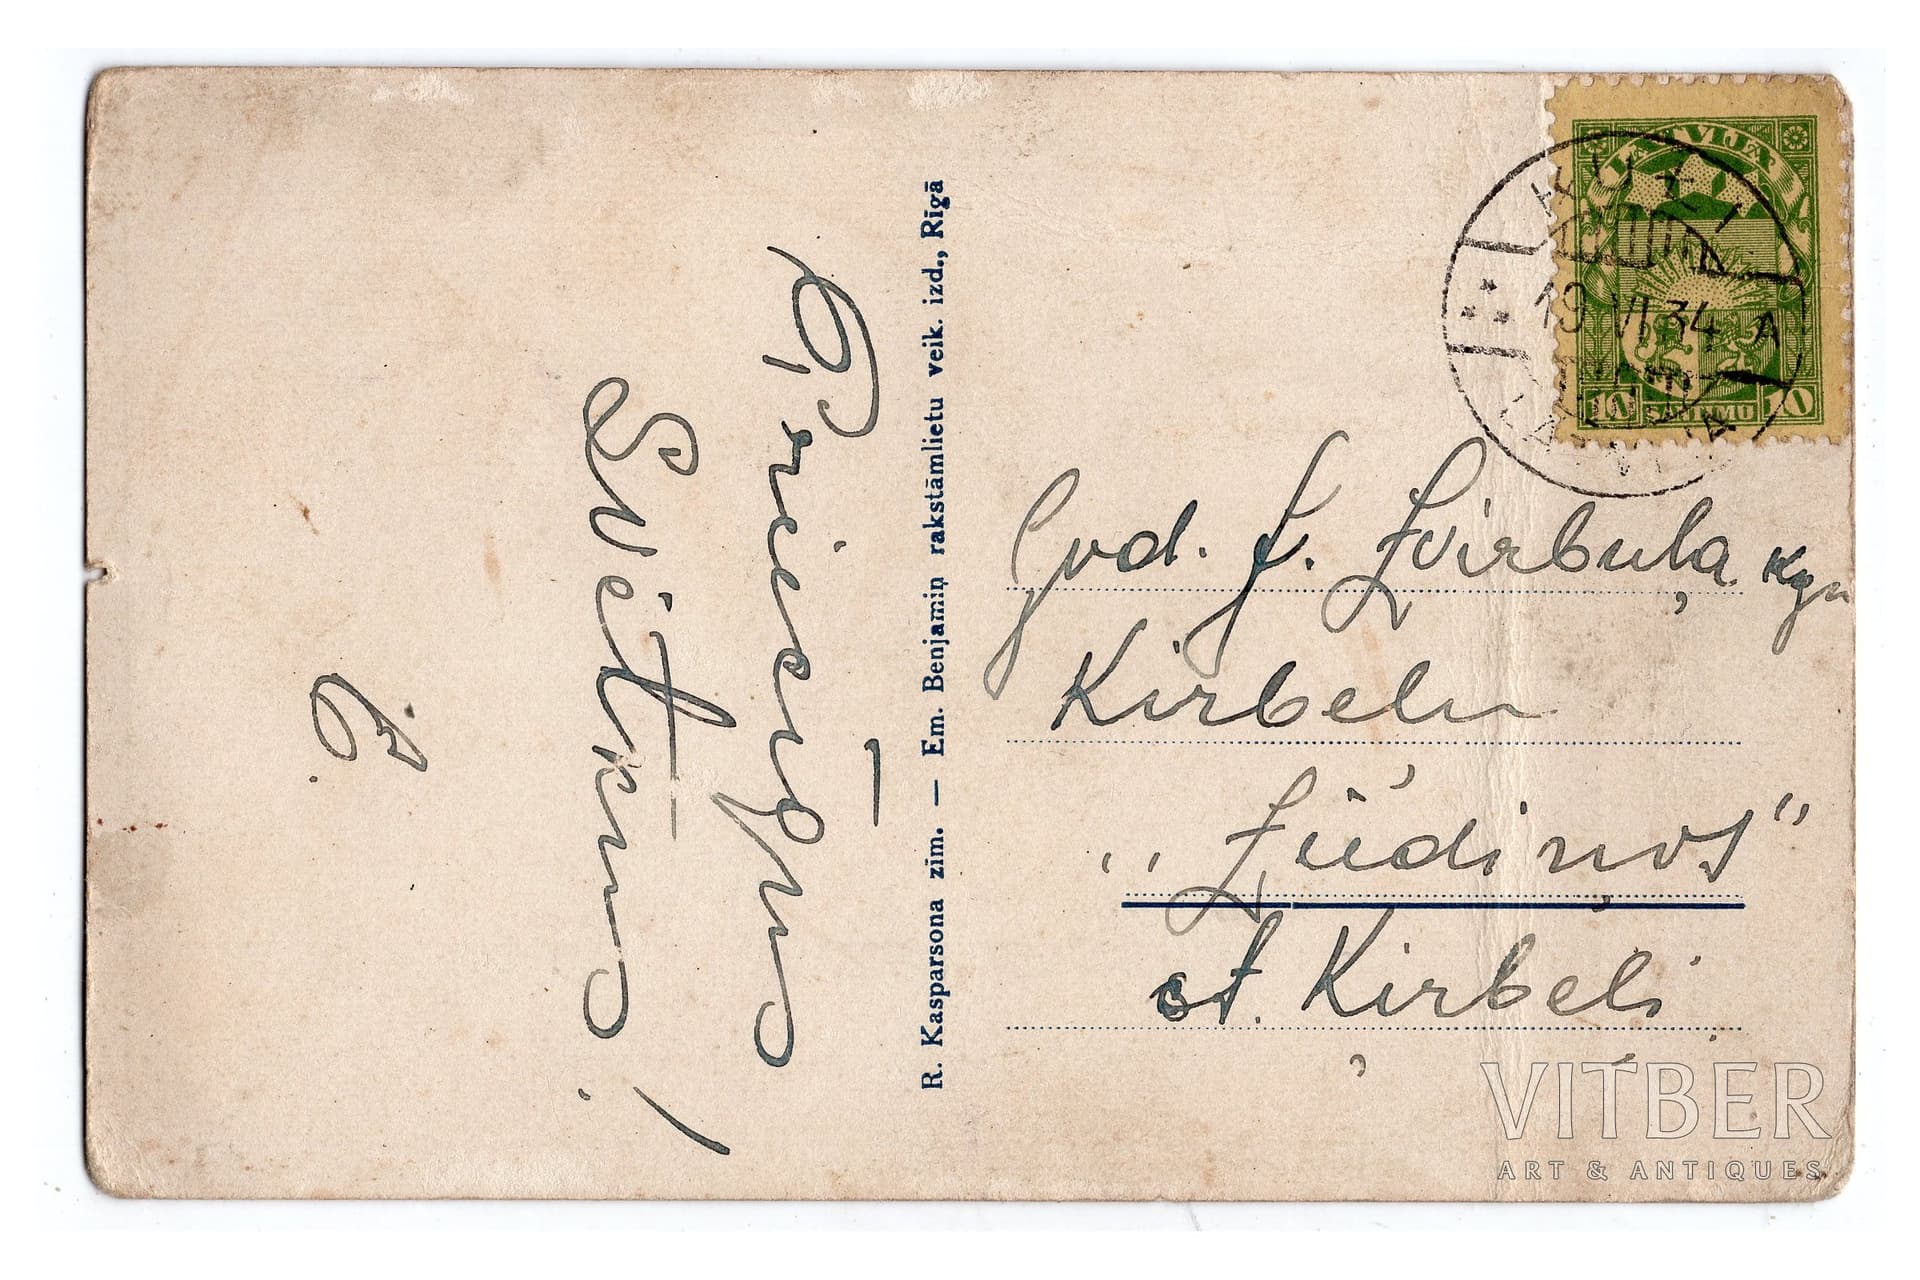 Priecīgus
Svētkus!
E.
R. Kasparsona zīm. — Em. Benjamiņ rakstāmlietu veik. izd., Rīgā
LATVIJA
10 SANTIMU 10
19 VI 34 A
LATVIJA
God. J. Zvirbuļa kgn
Kirbeļu
"Zūdiņos"
st. Ķirbeļi
VITBER
ART & ANTIQUES